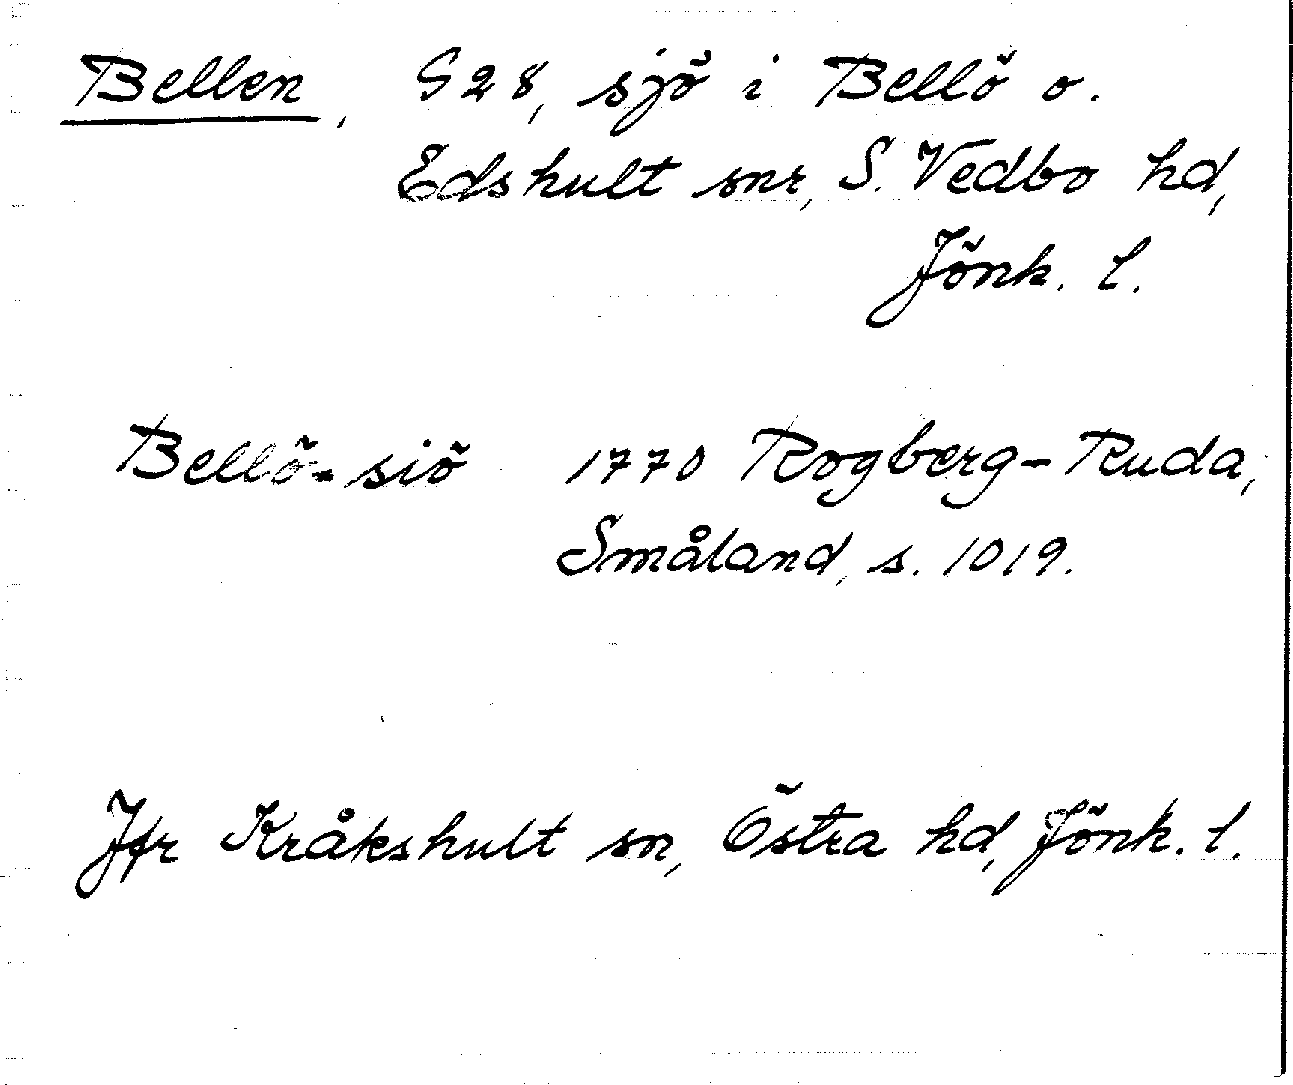 Bellen, S28, sjö i Bellö o.
Edshult snr, S. Vedbo hd,
Jönk. l.
Bellö-siö 1770 Rogberg-Ruda,
Småland, s. 1019.
Jfr Kråkshult sn, Östra hd, Jönk. l.